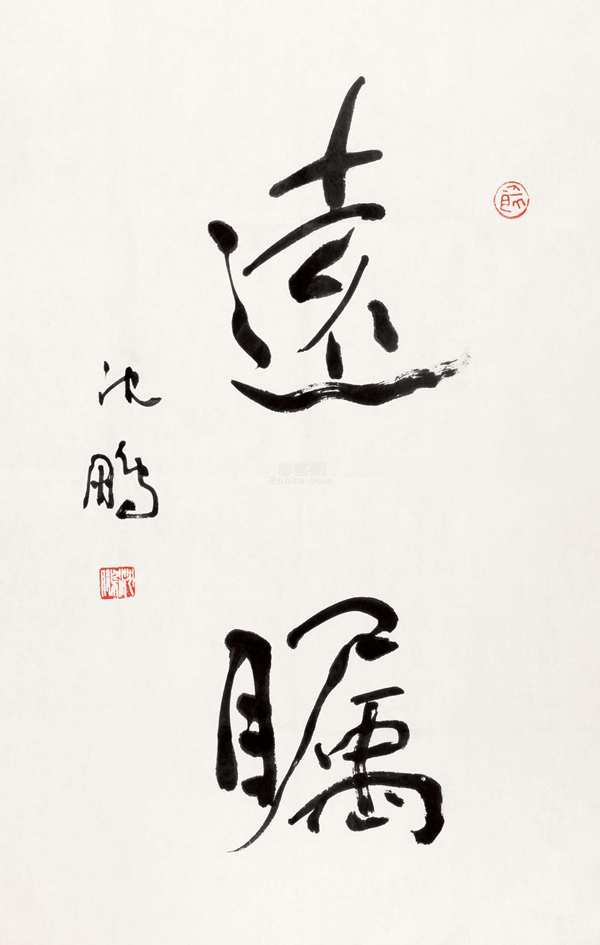 遠矚
沈鵬